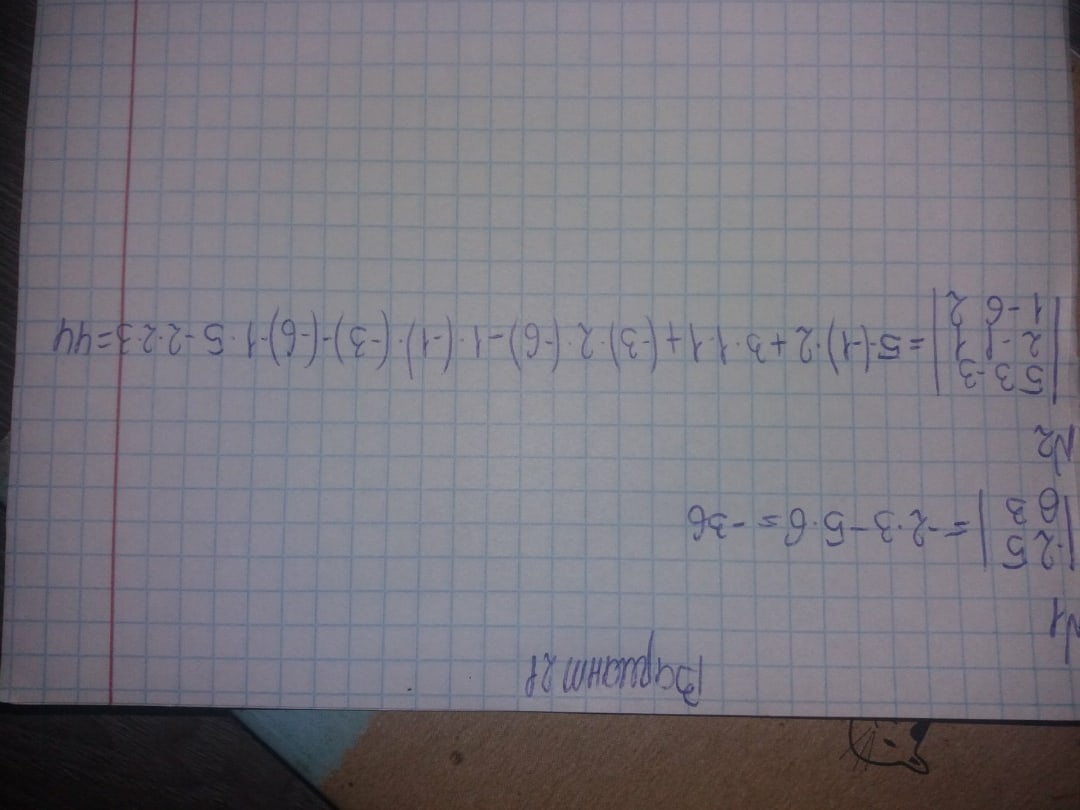 Вариант 21
№1
|-2 5|
|6 3| = -2·3-5·6 = -36
№2
|5 3 -3|
|2 -1 1| = 5·(-1)·2+3·1·1+(-3)·2·(-6)-1·(-1)·(-3)-(-6)·1·5-2·2·3=44
|1 -6 2|